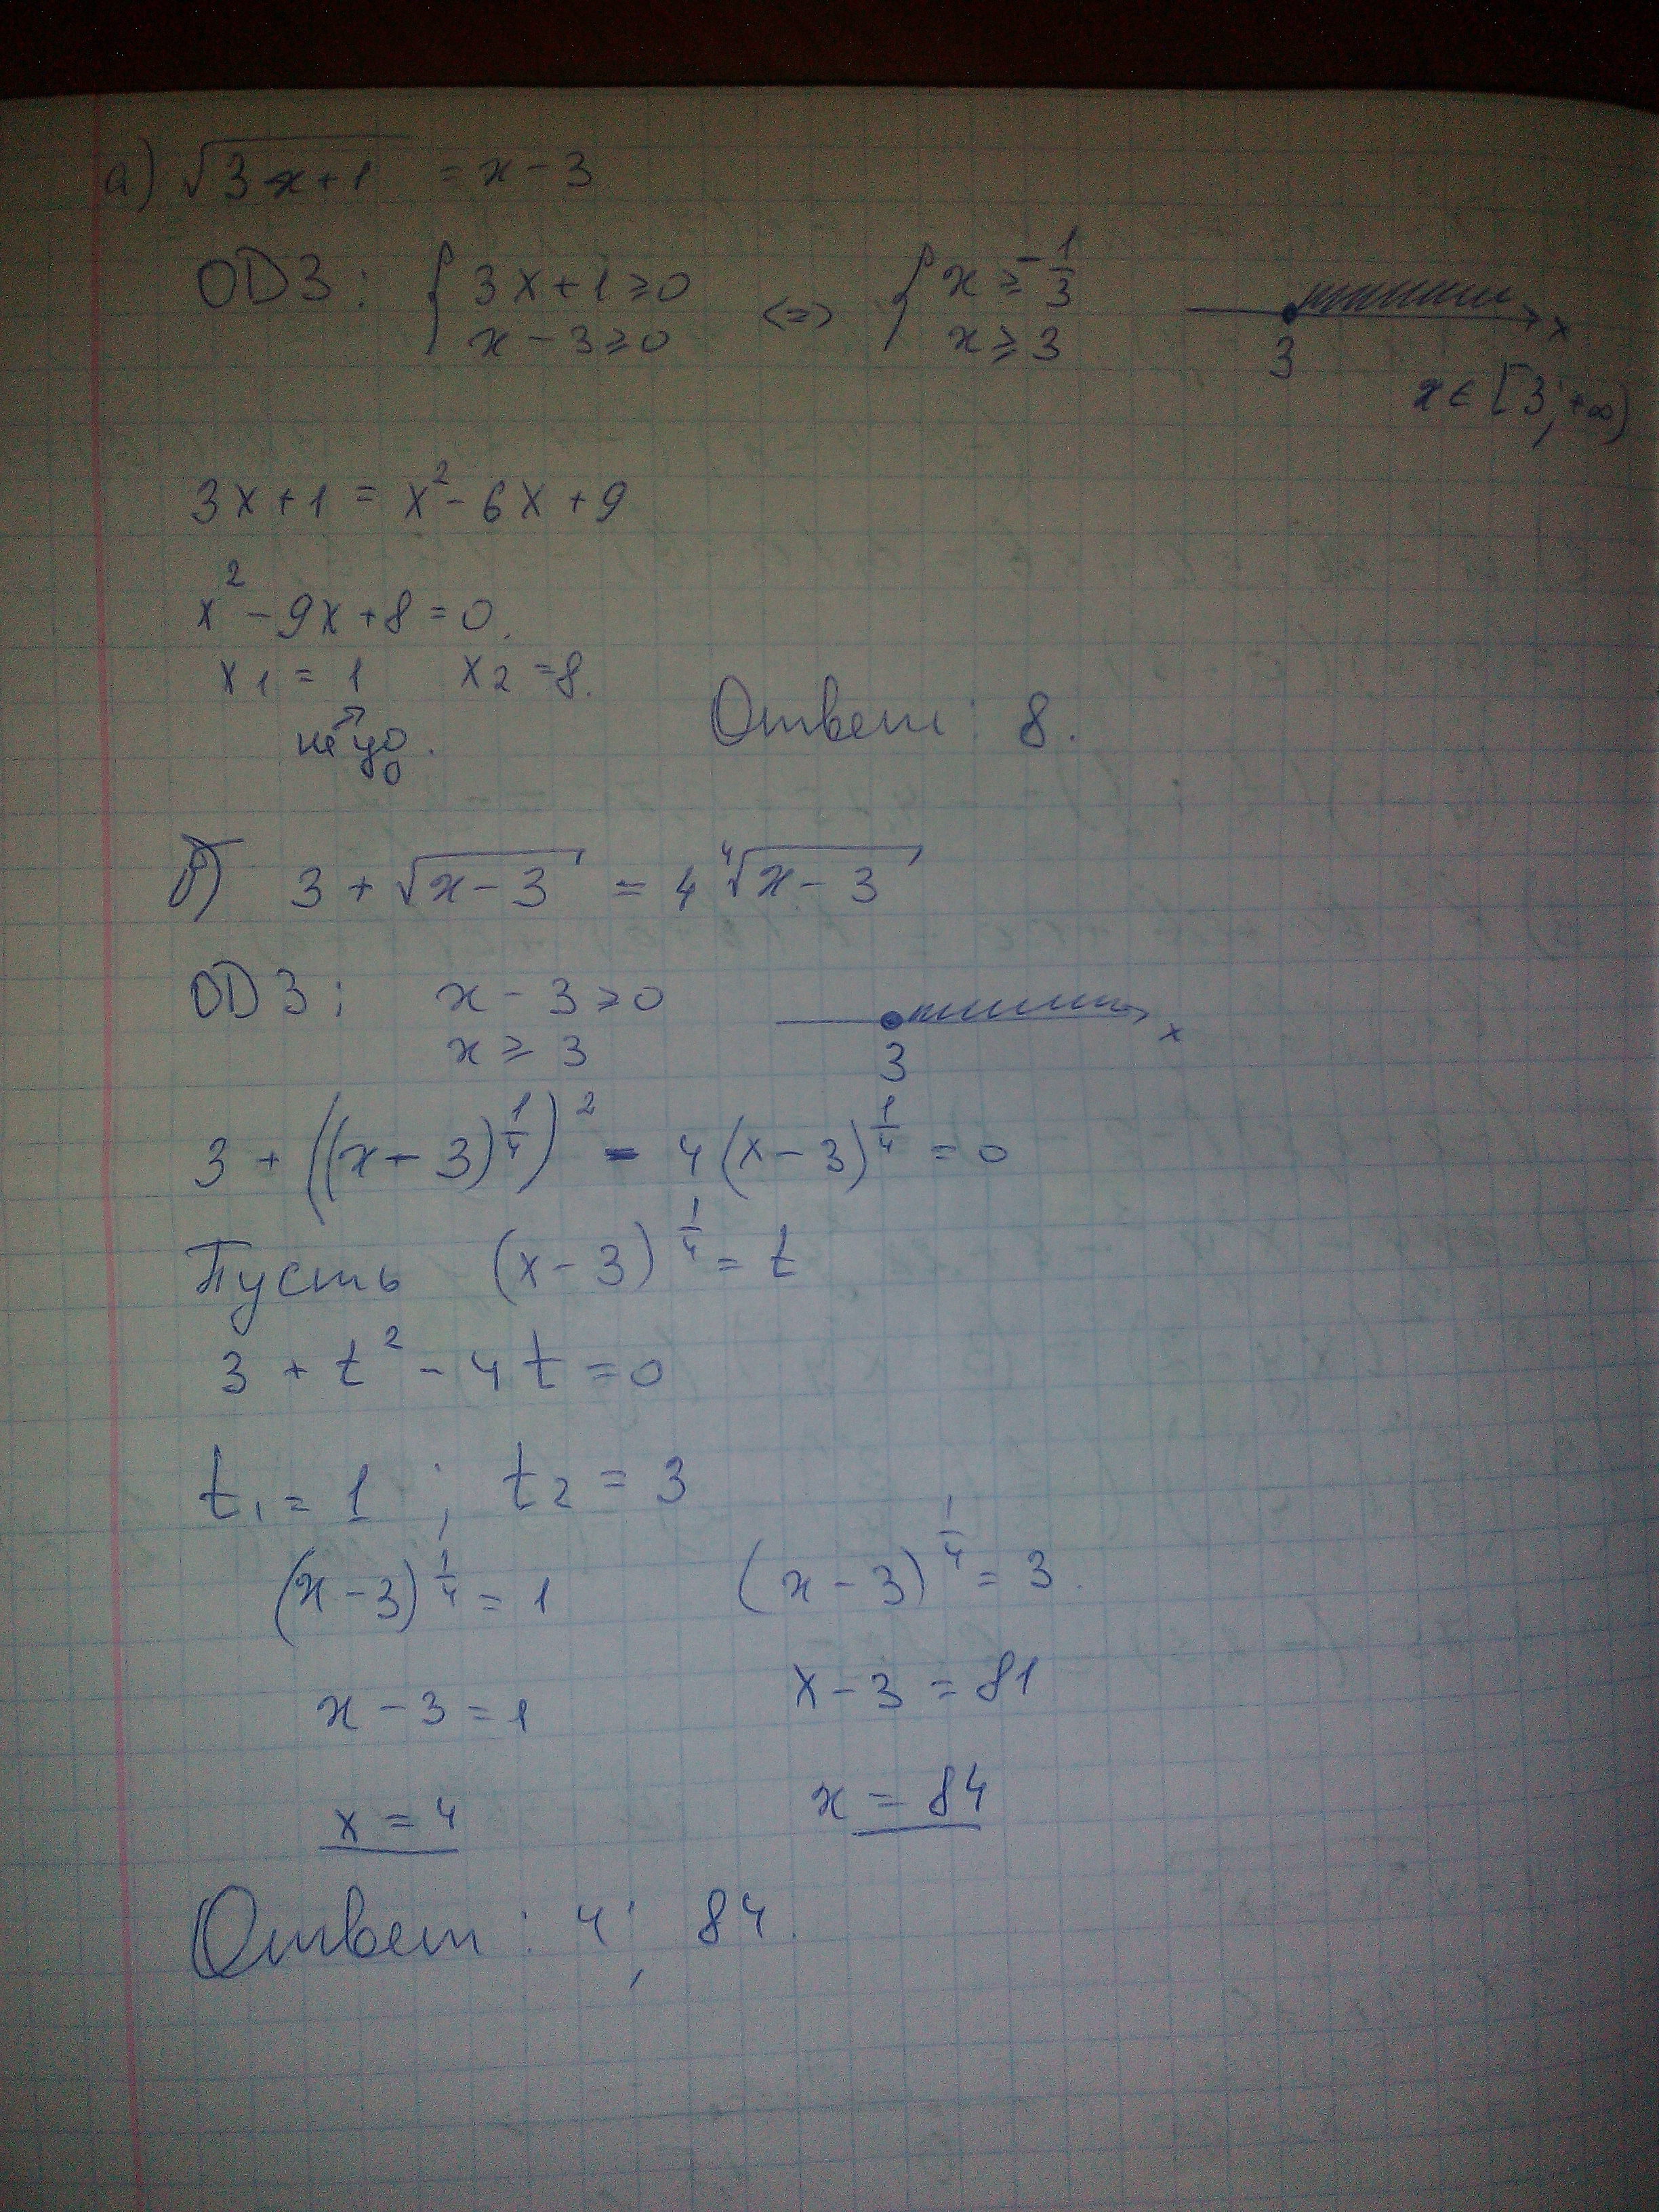 а) √(3x+1) = x-3
ОДЗ: { 3x+1≥0 <=> { x≥-1/3
x-3≥0 x≥3 3 x
x∈[3;+∞)
3x+1 = x²-6x+9
x²-9x+8=0.
x₁=1 x₂=8.
не уд. Ответ: 8.
б) 3+√(x-3) = 4⁴√(x-3)
ОДЗ: x-3≥0
x≥3 3 x
3+((x-3)^(1/4))² - 4(x-3)^(1/4) = 0
Пусть (x-3)^(1/4) = t
3+t²-4t=0
t₁=1; t₂=3
(x-3)^(1/4)=1 (x-3)^(1/4)=3.
x-3=1 x-3=81
x=4 x=84
Ответ: 4; 84.